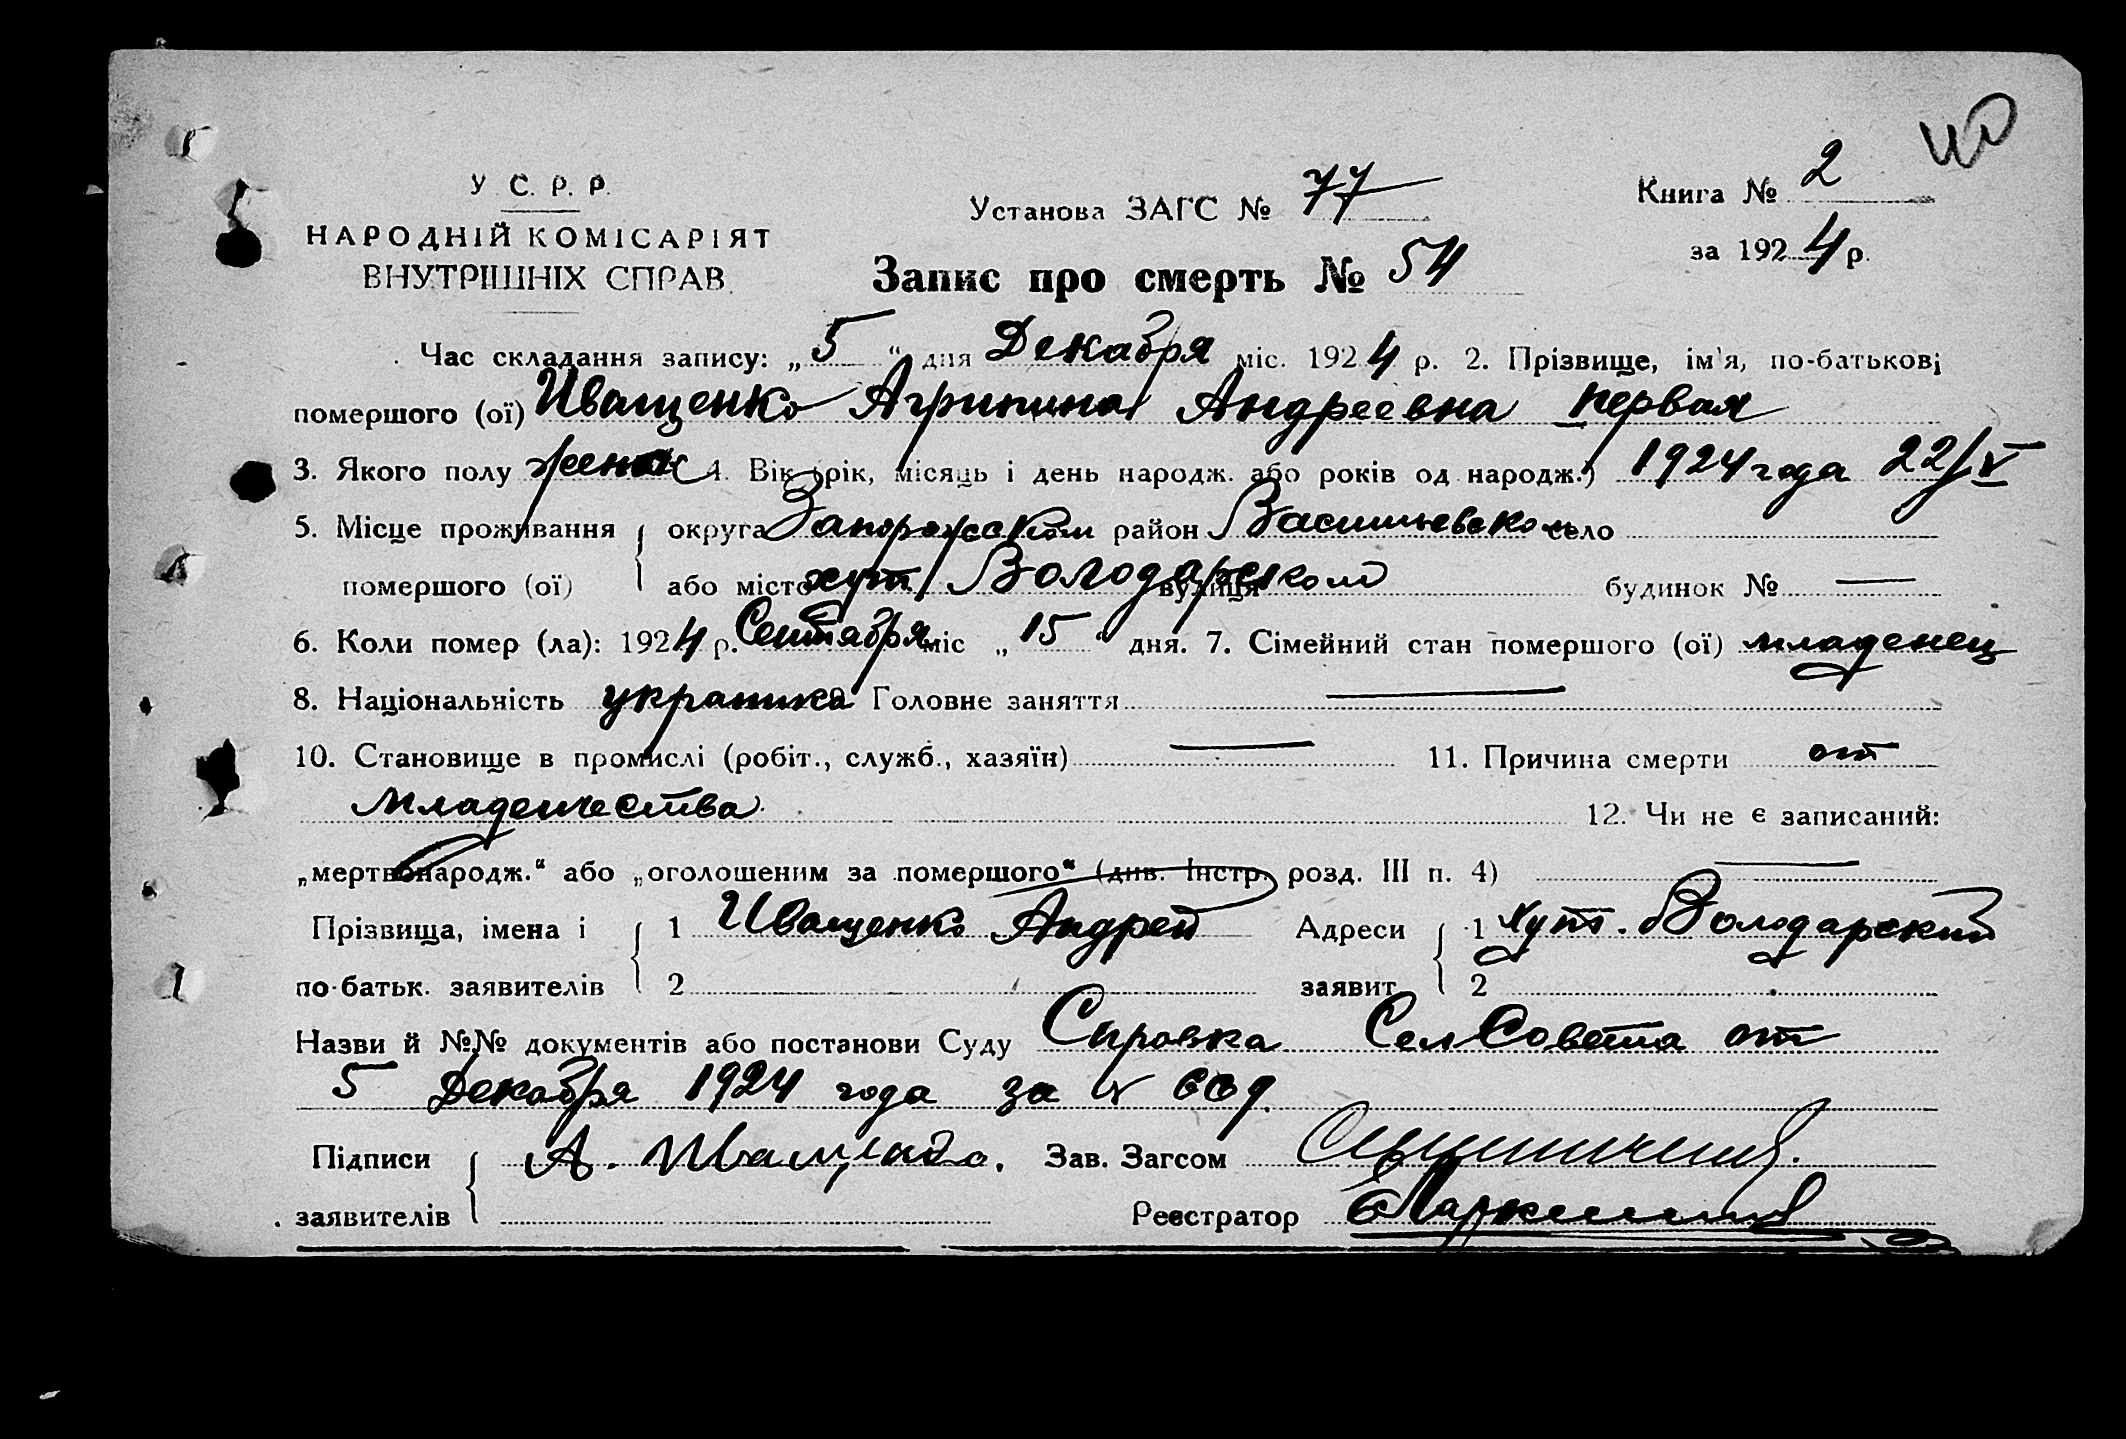 У. С. Р. Р.
НАРОДНІЙ КОМІСАРІЯТ
ВНУТРІШНІХ СПРАВ
Установа ЗАГС № 77
Книга № 2
за 1924 р.
Запис про смерть № 54
Час складання запису: „5“ дня Декабря міс. 1924 р. 2. Прізвище, ім'я, по-батькові
помершого (ої) Иващенко Агрипина Андреевна первая
3. Якого полу женск 4. Вік (рік, місяць і день народж. або років од народж.) 1924 года 22/V
5. Місце проживання округа Запорожском район Васильевском село
помершого (ої) або місто хут. Володарском вулиця будинок № —
6. Коли помер (ла): 1924 р. Сентября міс „15“ дня. 7. Сімейний стан помершого (ої) младенец
8. Національність Головне заняття —
10. Становище в промислі (робіт., служб., хазяїн) — 11. Причина смерти от
младенчества 12. Чи не є записаний:
„мертвонародж.“ або „оголошеним за помершого“ (див. Інстр. розд. III п. 4) —
Прізвища, імена і 1 Иващенко Андрей Адреси 1 Хут. Володарский
по-батьк. заявителів 2 заявит. 2
Назви й №№ документів або постанови Суду Справка СелСовета от
5 Декабря 1924 года за №
Підписи А. Иващенко. Зав. Загсом
заявителів Реєстратор